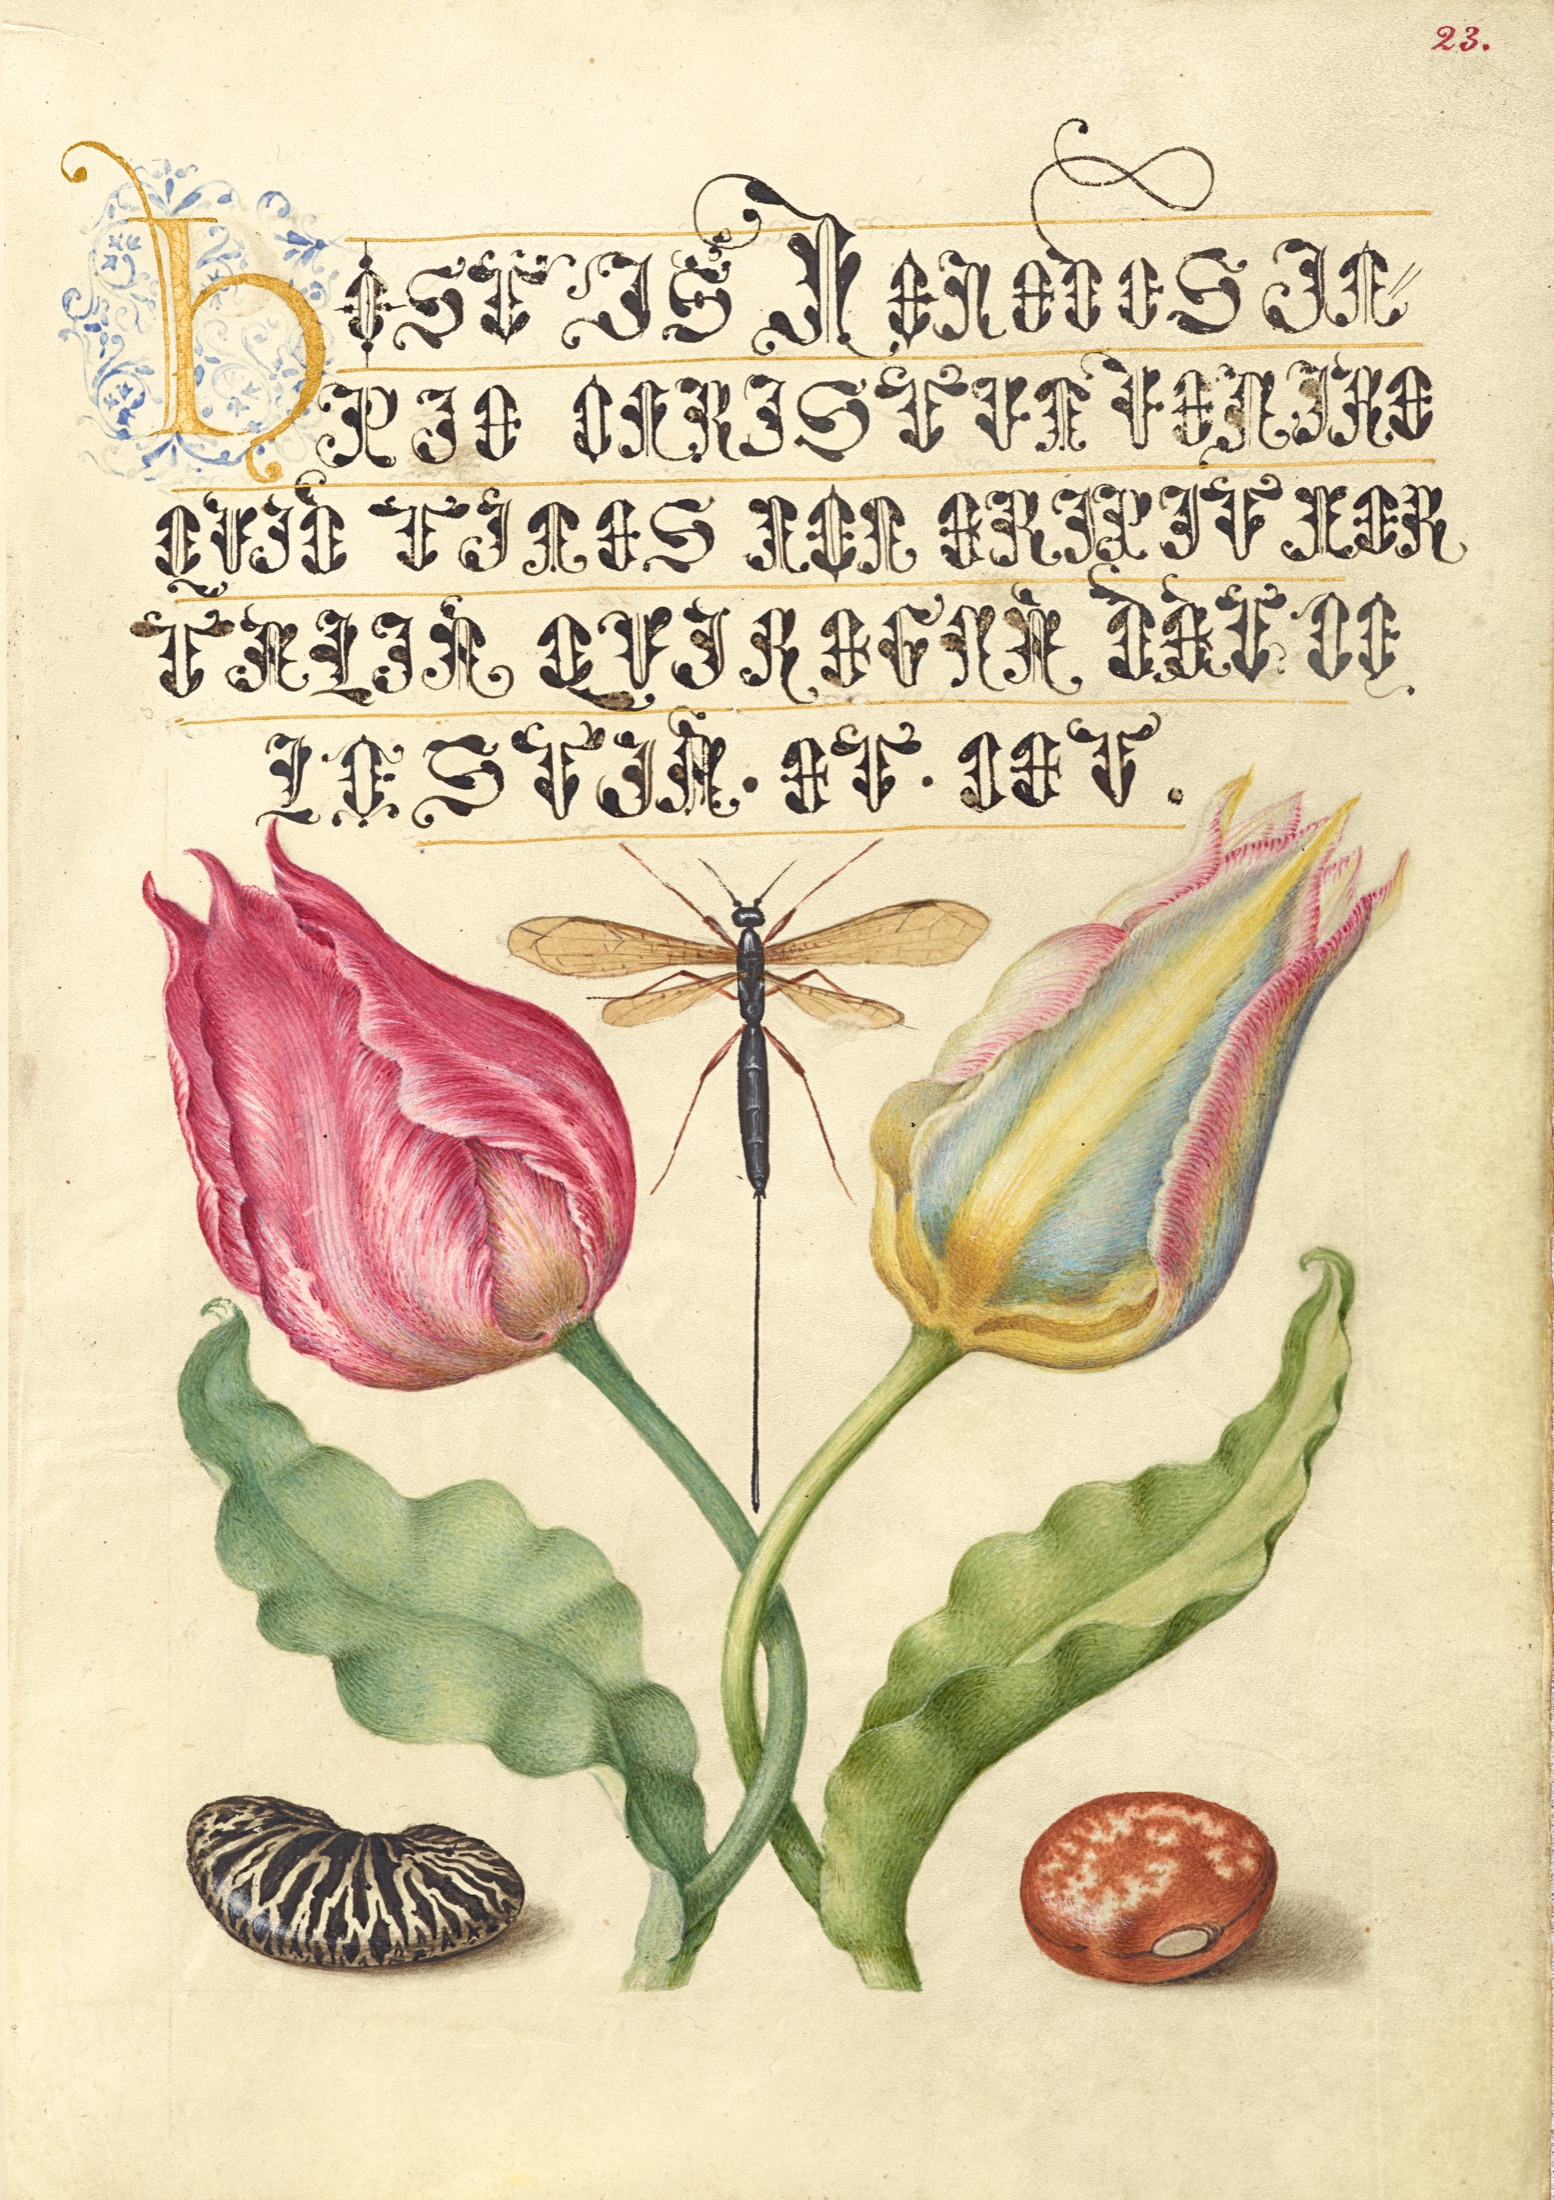 23.
HOSTIS HERODES IM=
PIE CHRISTVM VENIRE
QVID TIMES NON ERIPIT MOR
TALIA QVI REGNA DAT CE
LESTIA. ET. CET.